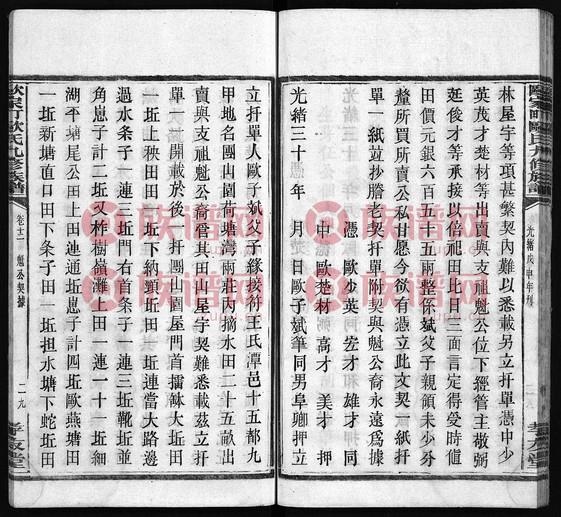 林屋宇等項甚繁契內難以悉載另立扦單憑中少
英茂才楚材等出賣與支祖魁公位下經管主敬弼
廷俊才等承接以倍祀田比日三面言定得受時值
田價元銀六百五十五兩整係斌父子親領未少分
釐所買所賣公私甘愿今欲有憑立此文契一紙扦
單一紙竝抄謄老契扦單附契與魁公裔永遠為據
憑 歐少英 宏才 雄才 同
中 歐楚材 高才 美才 押
光緒三十 年 月 日歐子斌筆同男阜卿押立
立扦單人歐子斌父子緣接符王氏潭邑十五都九
甲地名團山園荷塘灣兩莊內摘水田二十五畝出
賣與支祖魁公裔管其田山屋宇契難悉載茲立扦
單一紙開載於後一扦團山園屋門首擂鉢大坵田
一坵上秧田田一坵下納頸田一坵連當大路邊
過水条子一連三坵門右首条子一連三坵靴坵並
角崽子計二坵又杉樹嶺灘上田一連一十一坵細
湖平塘尾公田上田連通坵崽子計四坵歐燕塘田
一坵新塘直口田下条子田一坵担水塘下蛇坵田
歐家町歐氏九修族譜
卷十二 魁公契據
二九
光緒戊申年